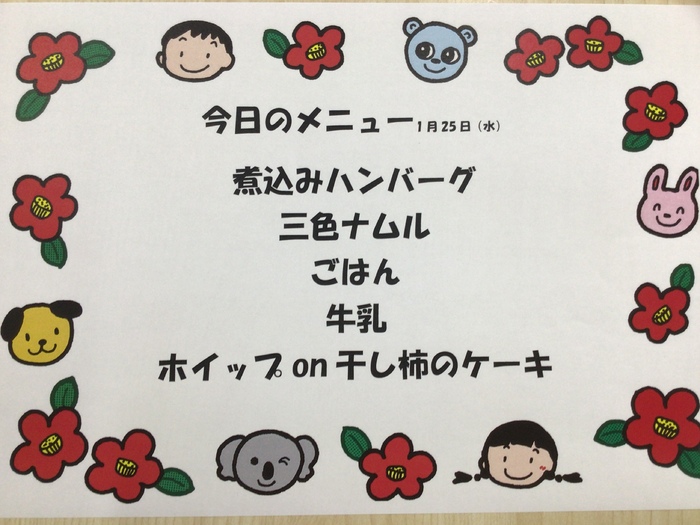 今日のメニュー1月25日（水）
煮込みハンバーグ
三色ナムル
ごはん
牛乳
ホイップon干し柿のケーキ